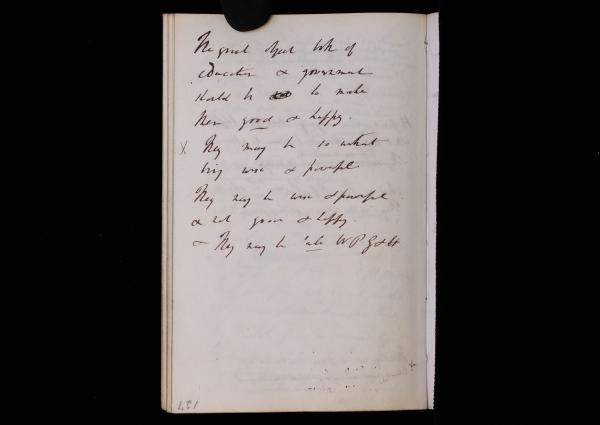 The great object both of
education & government
should be to make
Men good & happy.
x They may be so without
being wise & powerful
They may be wise & powerful
& not good & happy.
& They may be W P G & H
157